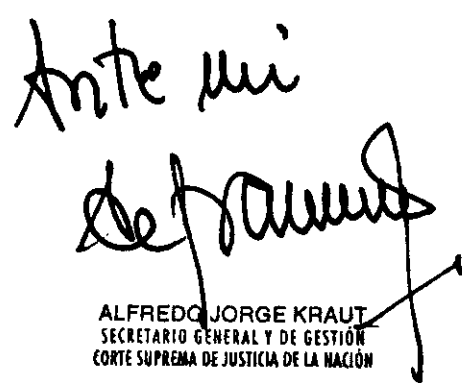 Ante mi
ALFREDO JORGE KRAUT
SECRETARIO GENERAL Y DE GESTIÓN
CORTE SUPREMA DE JUSTICIA DE LA NACIÓN